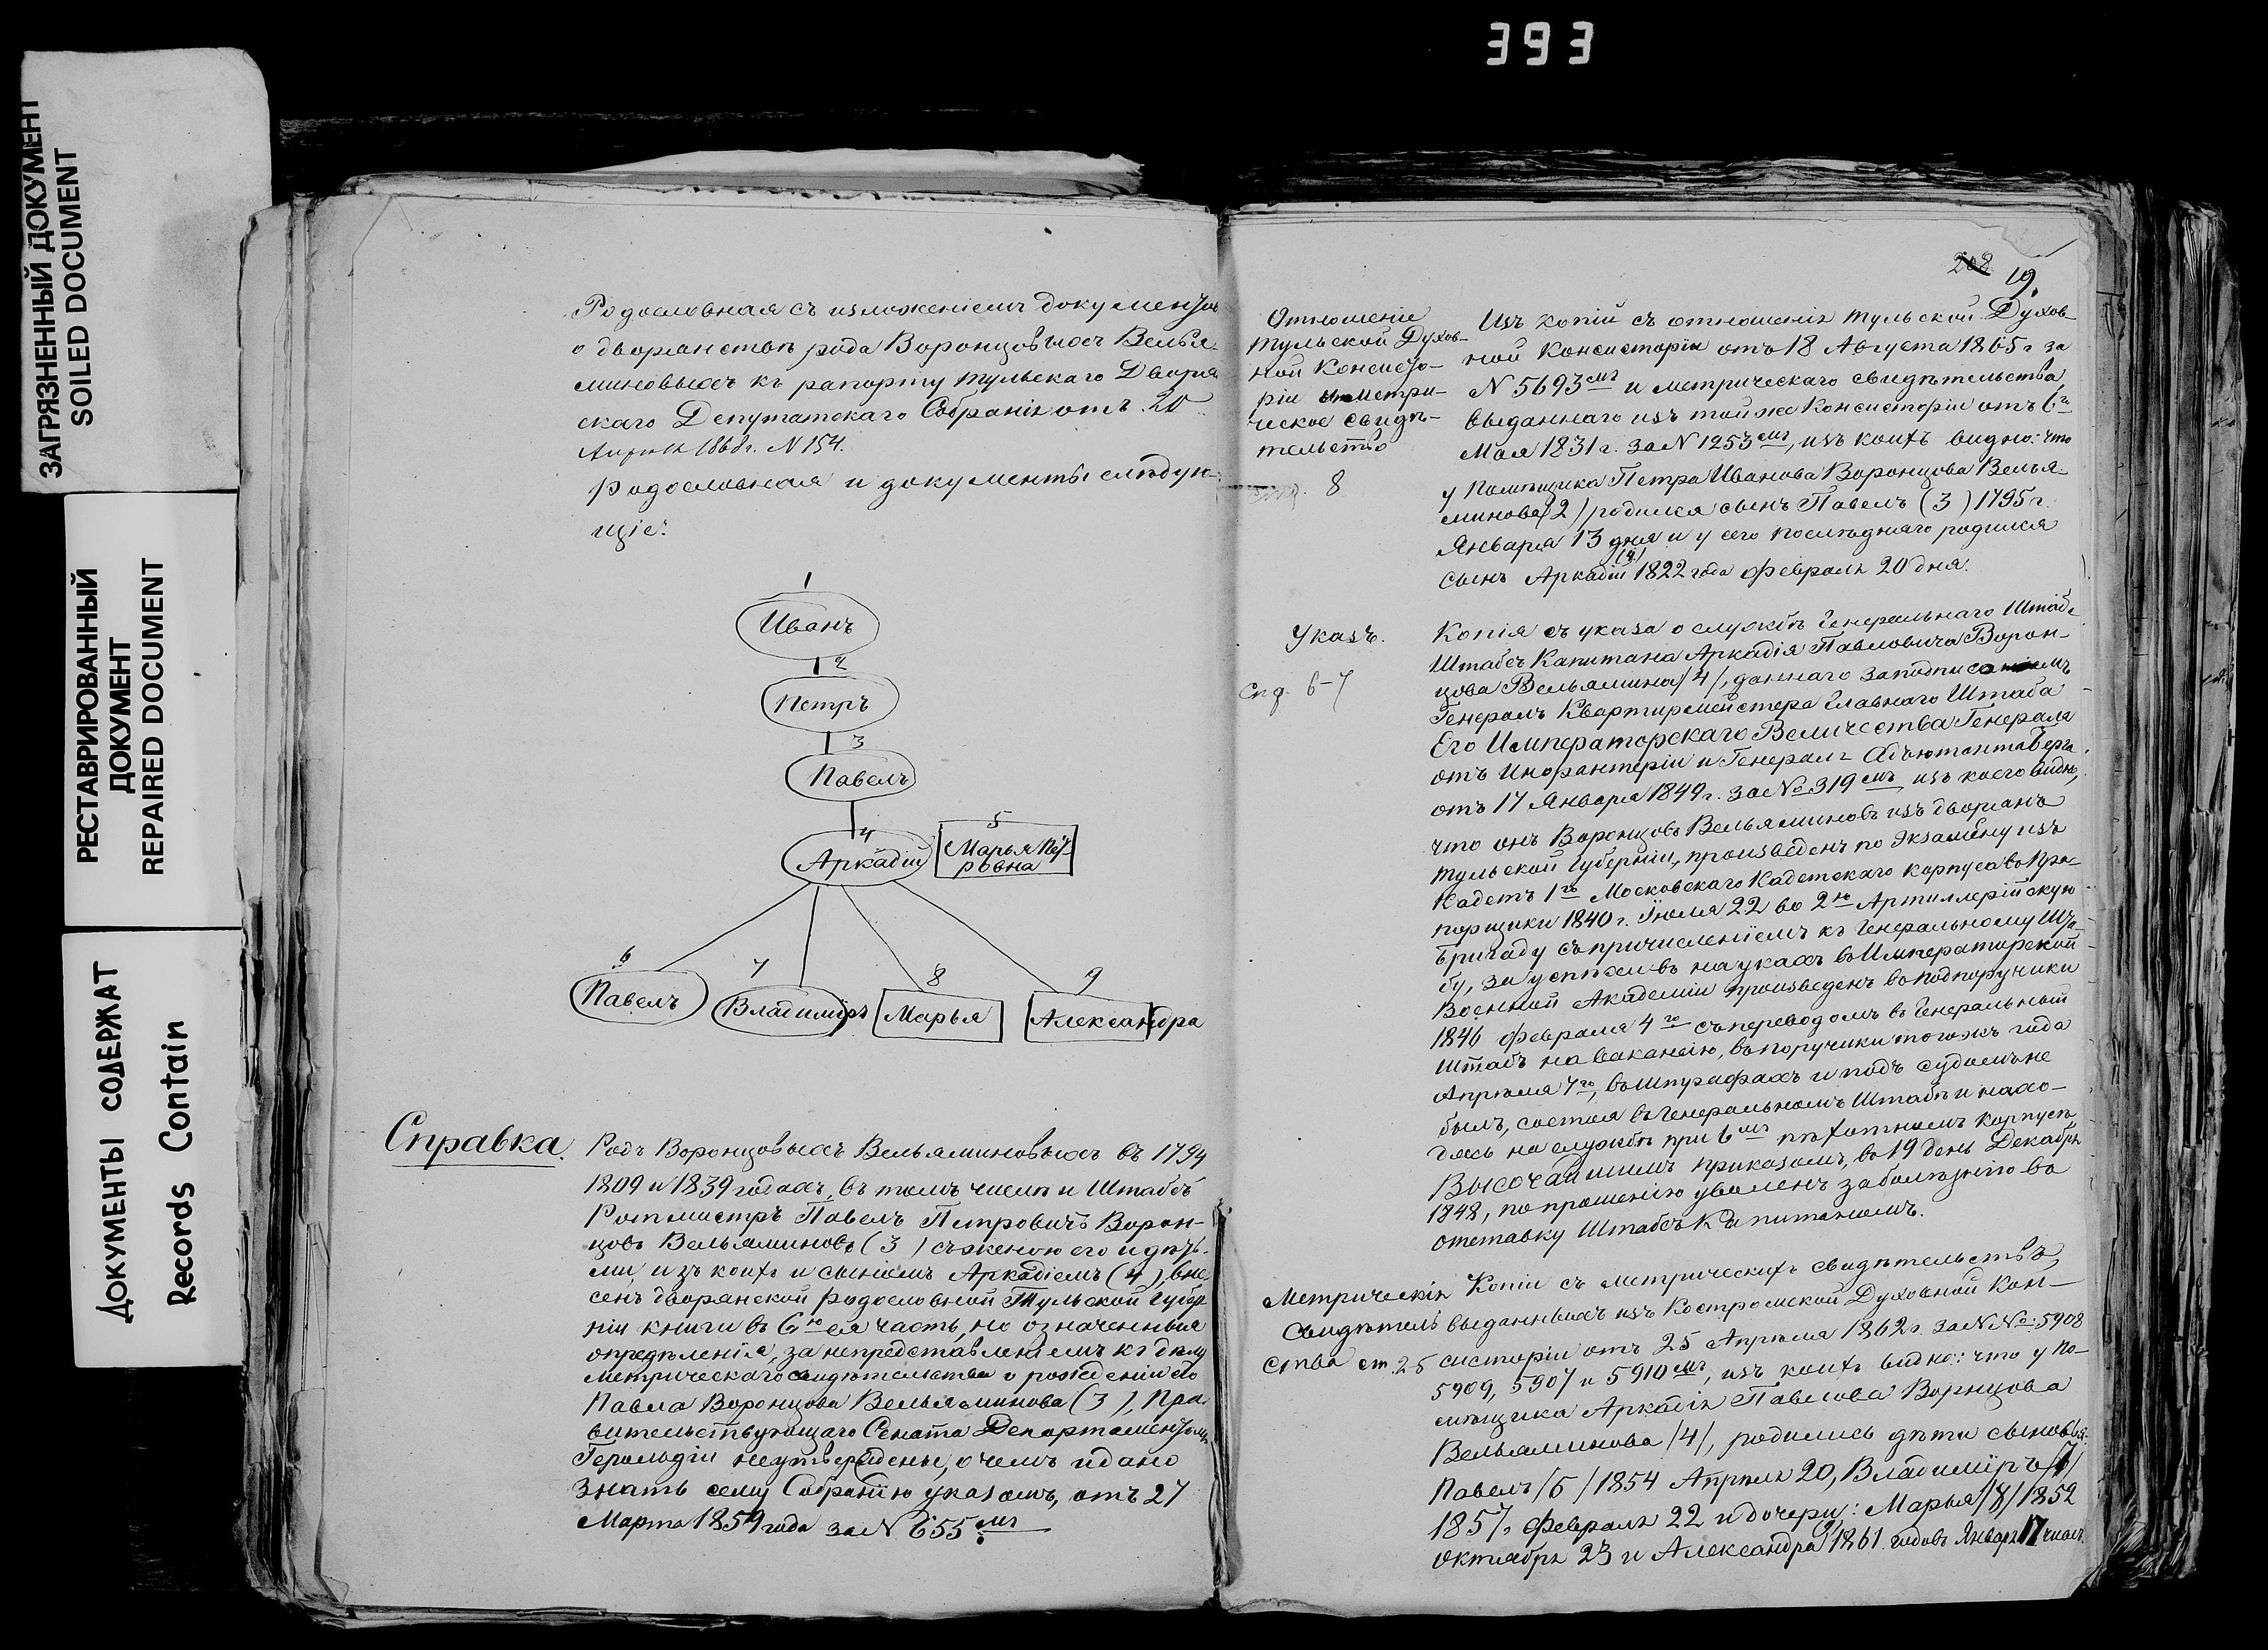 393
ЗАГРЯЗНЕННЫЙ ДОКУМЕНТ
SOILED DOCUMENT
РЕСТАВРИРОВАННЫЙ
ДОКУМЕНТ
REPAIRED DOCUMENT
ДОКУМЕНТЫ СОДЕРЖАТ
Records Contain
Родословная съ изложеніемъ документовъ
о дворянствѣ рода Воронцовыхъ Велья-
миновыхъ къ рапорту Тульскаго Дворян
скаго Депутатскаго Собранія отъ 20
Апрѣля 1868 г. N 154.
Родословная и документы слѣдую-
щіе:
1
Иванъ
2
Петръ
3
Павелъ
4
Аркадій
5
Марья Пет-
ровна
6
Павелъ
7
Владиміръ
8
Марья
9
Александра
Справка.
Родъ Воронцовыхъ Вельяминовыхъ въ 1794
1809 и 1839 годахъ, въ томъ числѣ и Штабсъ
Ротмистръ Павелъ Петровичъ Ворон-
цовъ Вельяминовъ (3) съ женою его и дѣть-
ми, изъ коихъ и сыномъ Аркадіемъ (4), вне-
сенъ дворянской родословной Тульской Губер-
ніи книги въ 6ю ея часть, но означенныя
опредѣленія, за непредставленіемъ къ дѣлу
метрическаго свидѣтельства о рожденіи его
Павла Воронцова Вельяминова (3), Пра-
вительствующаго Сената Департаментомъ
Герольдіи неутверждены, о чемъ и дано
знать сему Собранію указомъ, отъ 27
Марта 1859 года за N 655мъ
208
19.
Отношеніе
Тульской Духов-
ной Консисто-
ріи и метри-
ческое свидѣ-
тельство
8
Изъ копій съ отношенія Тульской Духов-
ной Консисторіи отъ 18 Августа 1865 г за
N 5693мъ и метрическаго свидѣтельства,
выданнаго изъ той же Консисторіи отъ 6го
Мая 1831 г. за N 1253мъ, изъ коихъ видно: что
у Помѣщика Петра Иванова Воронцова Велья-
минова (2) родился сынъ Павелъ (3) 1795 г.
Января 13 дня и у сего послѣдняго родился
сынъ Аркадій (4) 1822 года Февраля 20 дня.
Указъ.
6-7
Копія съ указа о службѣ Генеральнаго Штаба
Штабсъ Капитана Аркадія Павловича Ворон-
цова Вельямина /4/, даннаго за подписаніемъ
Генералъ Квартирмейстера Главнаго Штаба
Его Императорскаго Величества Генерала
отъ Инфантеріи и Генералъ Адъютанта Берга
отъ 17 Января 1849 г. за № 319мъ изъ коего видно,
что онъ Воронцовъ Вельяминовъ изъ дворянъ
Тульской Губерніи, произведенъ по экзамену изъ
Кадетъ 1го Московскаго Кадетскаго корпуса въ Пра-
порщики 1840 г. Іюля 22 во 2ю Артиллерійскую
бригаду съ причисленіемъ къ Генеральному Шта-
бу, за успѣхи въ наукахъ въ Императорской
Военной Академіи произведенъ въ подпоручики
1846 Февраля 4го съ переводомъ въ Генеральный
Штабъ на вакансію, въ поручики того жъ года
Апрѣля 7го, въ штрафахъ и подъ судомъ не
былъ, состоя въ Генеральномъ Штабѣ и нахо-
дясь на службѣ при 6мъ пѣхотномъ корпусѣ,
Высочайшимъ приказомъ, въ 19 день Декабря
1848, по прошенію уволенъ за болѣзнію въ
отставку Штабсъ Капитаномъ.
Метрическія
свидѣтель
ства ст. 2-5
Копіи съ метрическихъ свидѣтельствъ,
выданныхъ изъ Костромской Духовной Кон-
систоріи отъ 25 Апрѣля 1862 г. за N№: 5908
5909, 5907 и 5910мъ, изъ коихъ видно: что у По-
мѣщика Аркадія Павлова Воронцова
Вельяминова /4/, родились дѣти сыновья:
Павелъ /6/ 1854 Апрѣля 20, Владиміръ /7/
1857, Февраля 22 и дочери: Марья /8/ 1852
Октября 23 и Александра 9/ 1861 годовъ Января 17 чиселъ.